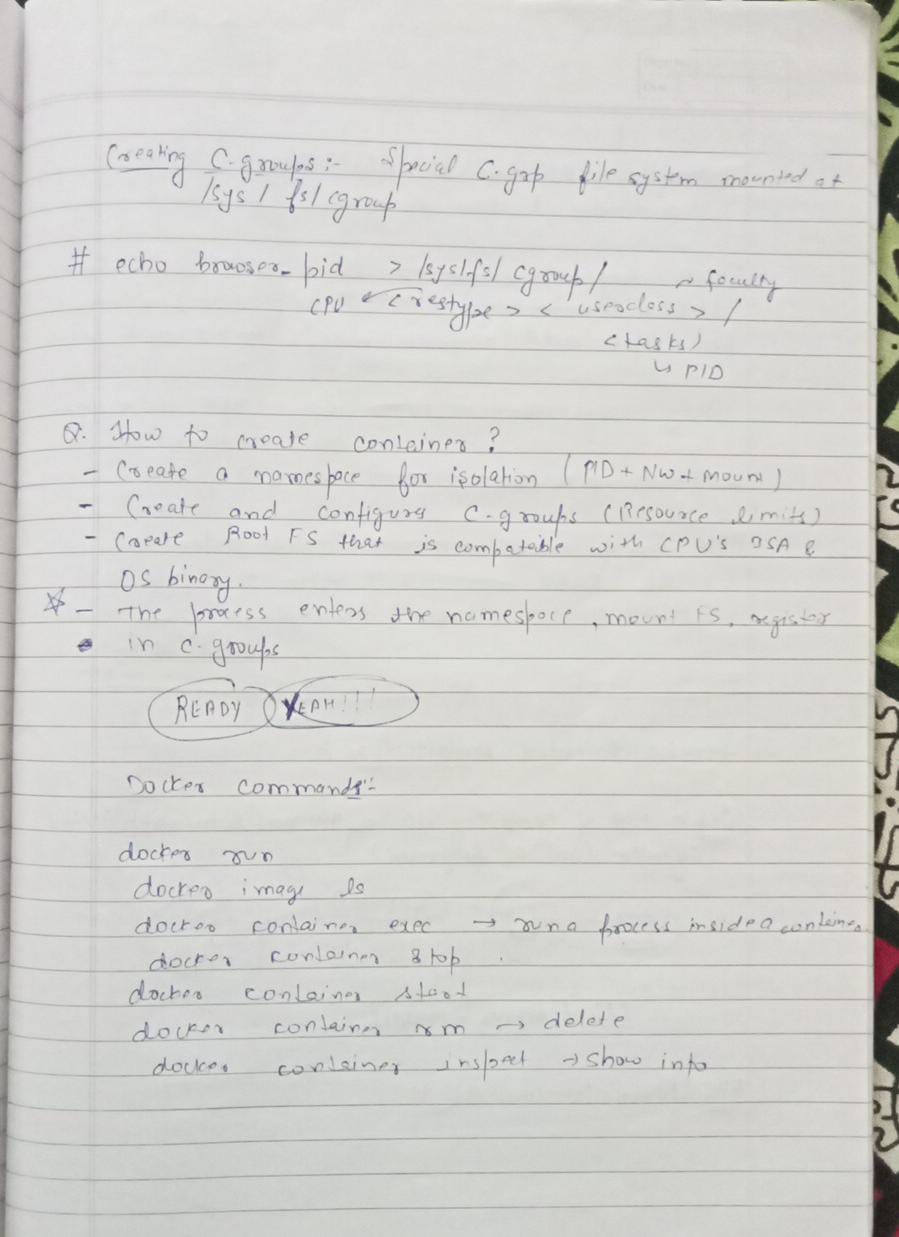 Creating C-groups :- Special C-grp file system mounted at
/sys / fs/ cgroup
# echo browser_pid > /sys/fs/ cgroup/
~ faculty
CPU <restype> < userclass > /
<tasks)
↳ PID
Q. How to create container ?
- Create a namespace for isolation ( PID + NW + Mount )
- Create and configure C-groups (Resource limits)
- Create Root FS that is compatable with CPU's ISA &
OS binary.
☆ - The process enters the namespace, mount FS, register
in C-groups
READY YEAH!!!
Docker commands:-
docker run
docker image ls
docker container exec → run a process inside a container
docker container stop .
docker container start
docker container rm → delete
docker container inspect → show info